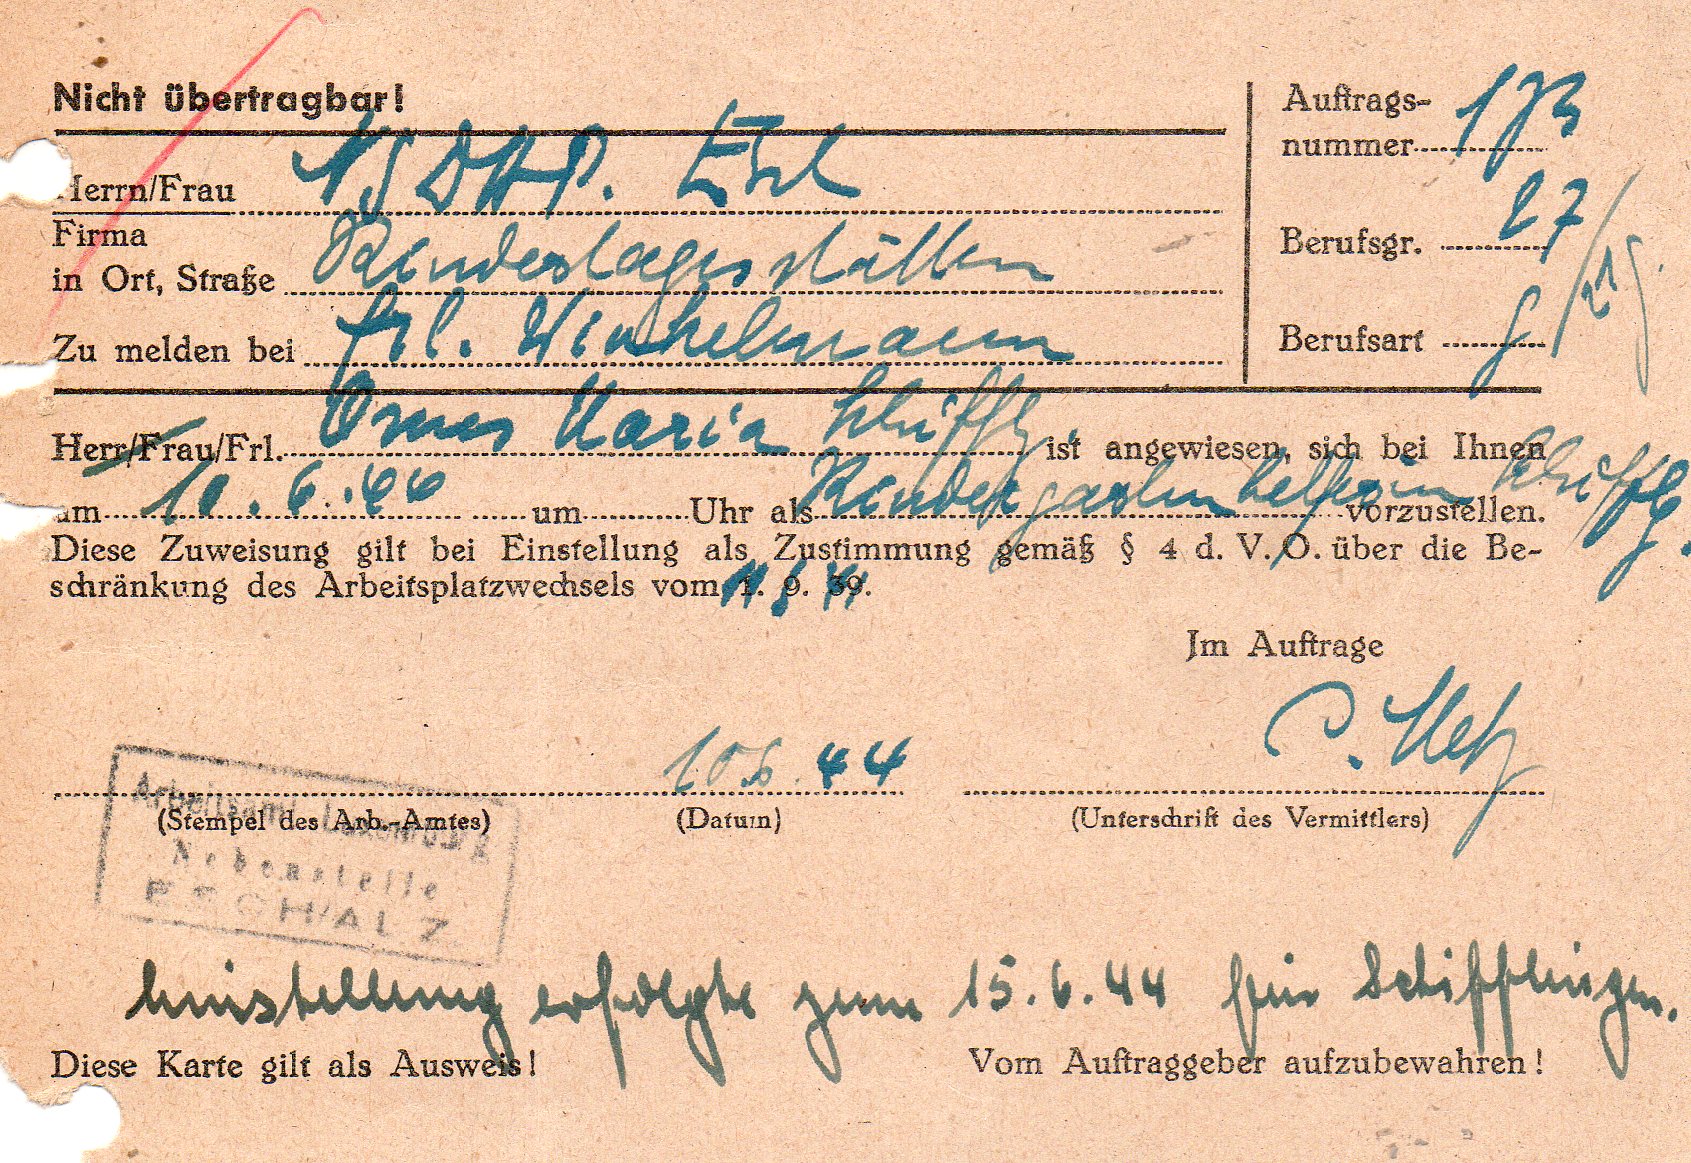 Nicht übertragbar!
Auftrags-
nummer 173
Herrn/Frau NSDAP. Esch
Firma
in Ort, Straße Kindertagesstätten
Berufsgr. 27
Zu melden bei Frl. Winkelmann
Berufsart g
Herr/Frau/Frl. Maria Schiffl. ist angewiesen, sich bei Ihnen
am 10.6.44 um Uhr als Kindergartenhelferin Schiffl. vorzustellen.
Diese Zuweisung gilt bei Einstellung als Zustimmung gemäß § 4 d. V. O. über die Be-
schränkung des Arbeitsplatzwechsels vom 1. 9. 39.
Jm Auftrage
P. Metz
10.6.44
(Stempel des Arb.-Amtes) (Datum) (Unterschrift des Vermittlers)
Arbeitsamt Luxemburg
Nebenstelle
ESCH/ALZ
Einstellung erfolgte zum 15.6.44 für Schifflingen.
Diese Karte gilt als Ausweis! Vom Auftraggeber aufzubewahren!